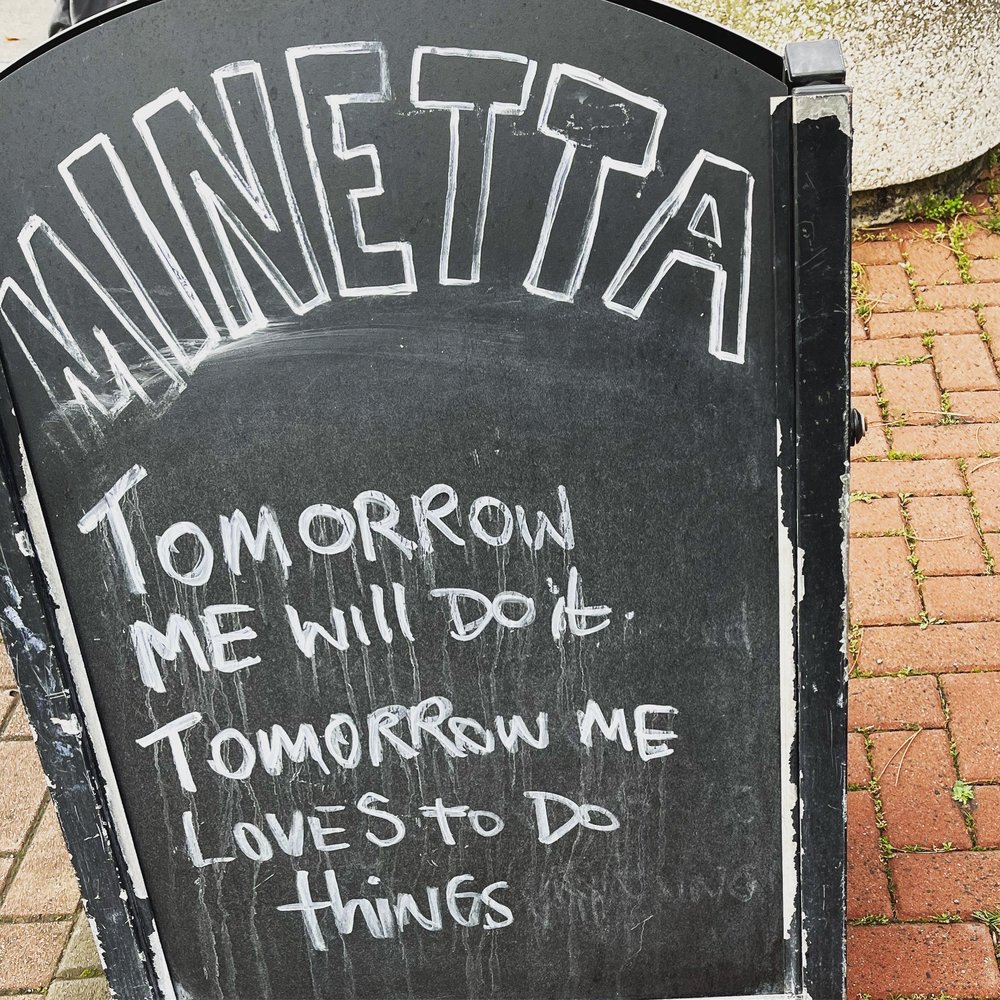 MINETTA
TOMORROW
ME Will DO it.
TOMORROW ME
LOVES to DO
thiNGS